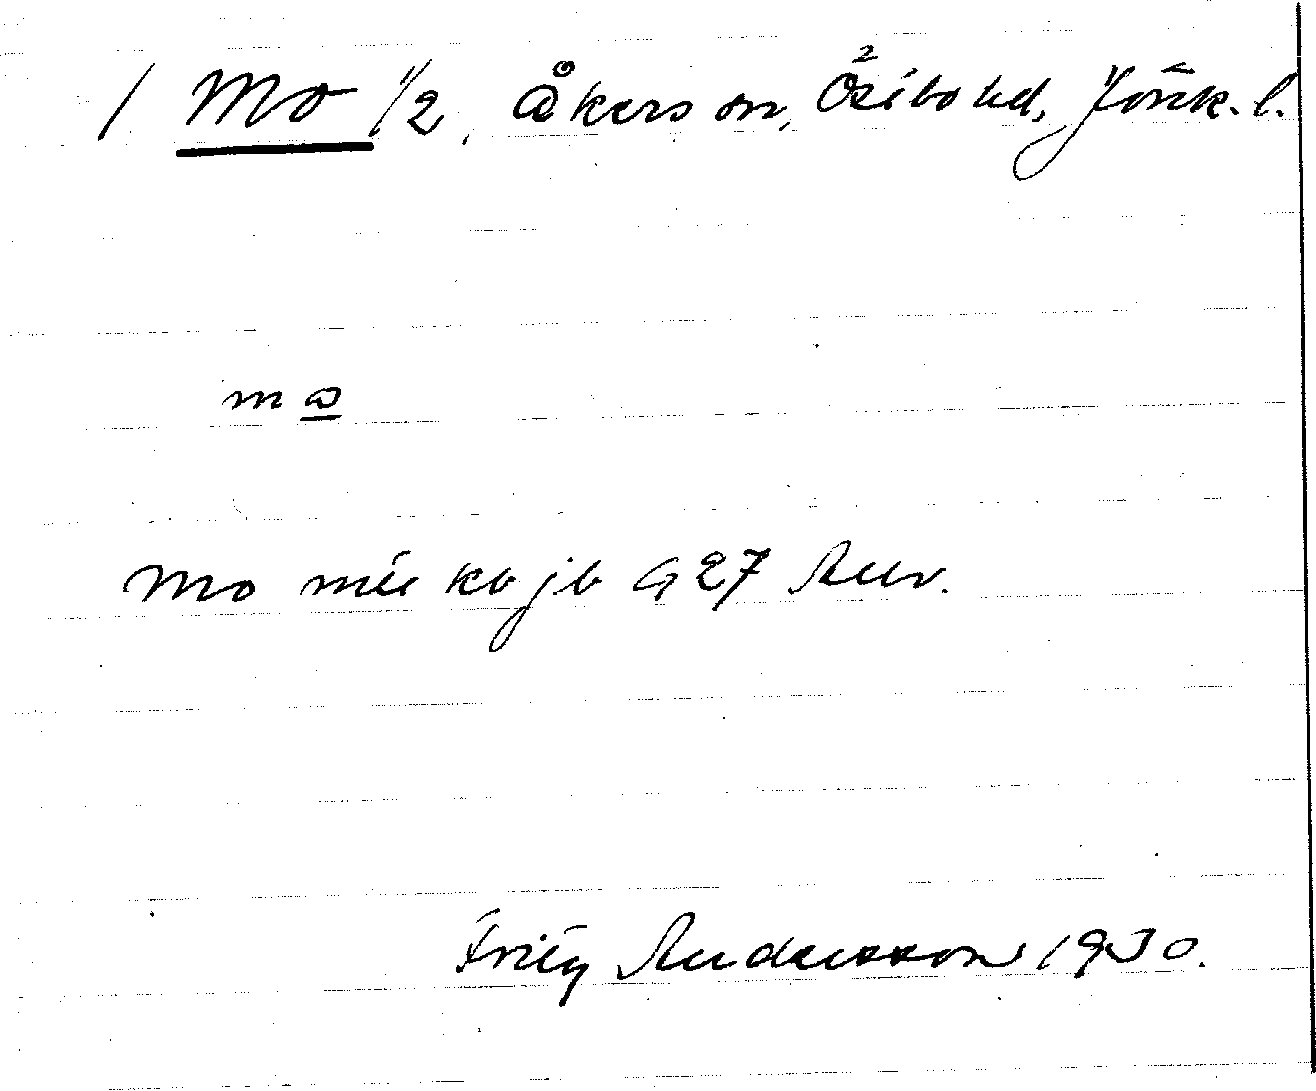 / Mo 1/2, Åkers sn, Östbo hd, Jönk. l.
mω
Mo
kb jb 927
Fritz Andersson 1930.